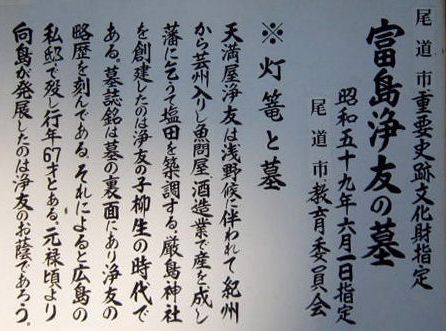 尾道市重要史跡文化財指定
富島浄友の墓
昭和五十九年六月一日指定
尾道市教育委員会
※灯篭と墓
天満屋浄友は浅野候に伴われて紀州
から芸州入りし魚問屋、酒造業で産を成し
藩に乞うて塩田を築調する。厳島神社
を創建したのは浄友の子柳生の時代で
ある。墓誌銘は墓の裏面にあり浄友の
略歴を刻んである。それによると広島の
私邸で歿し行年67才とある。元禄頃より
向島が発展したのは浄友のお蔭であろう。